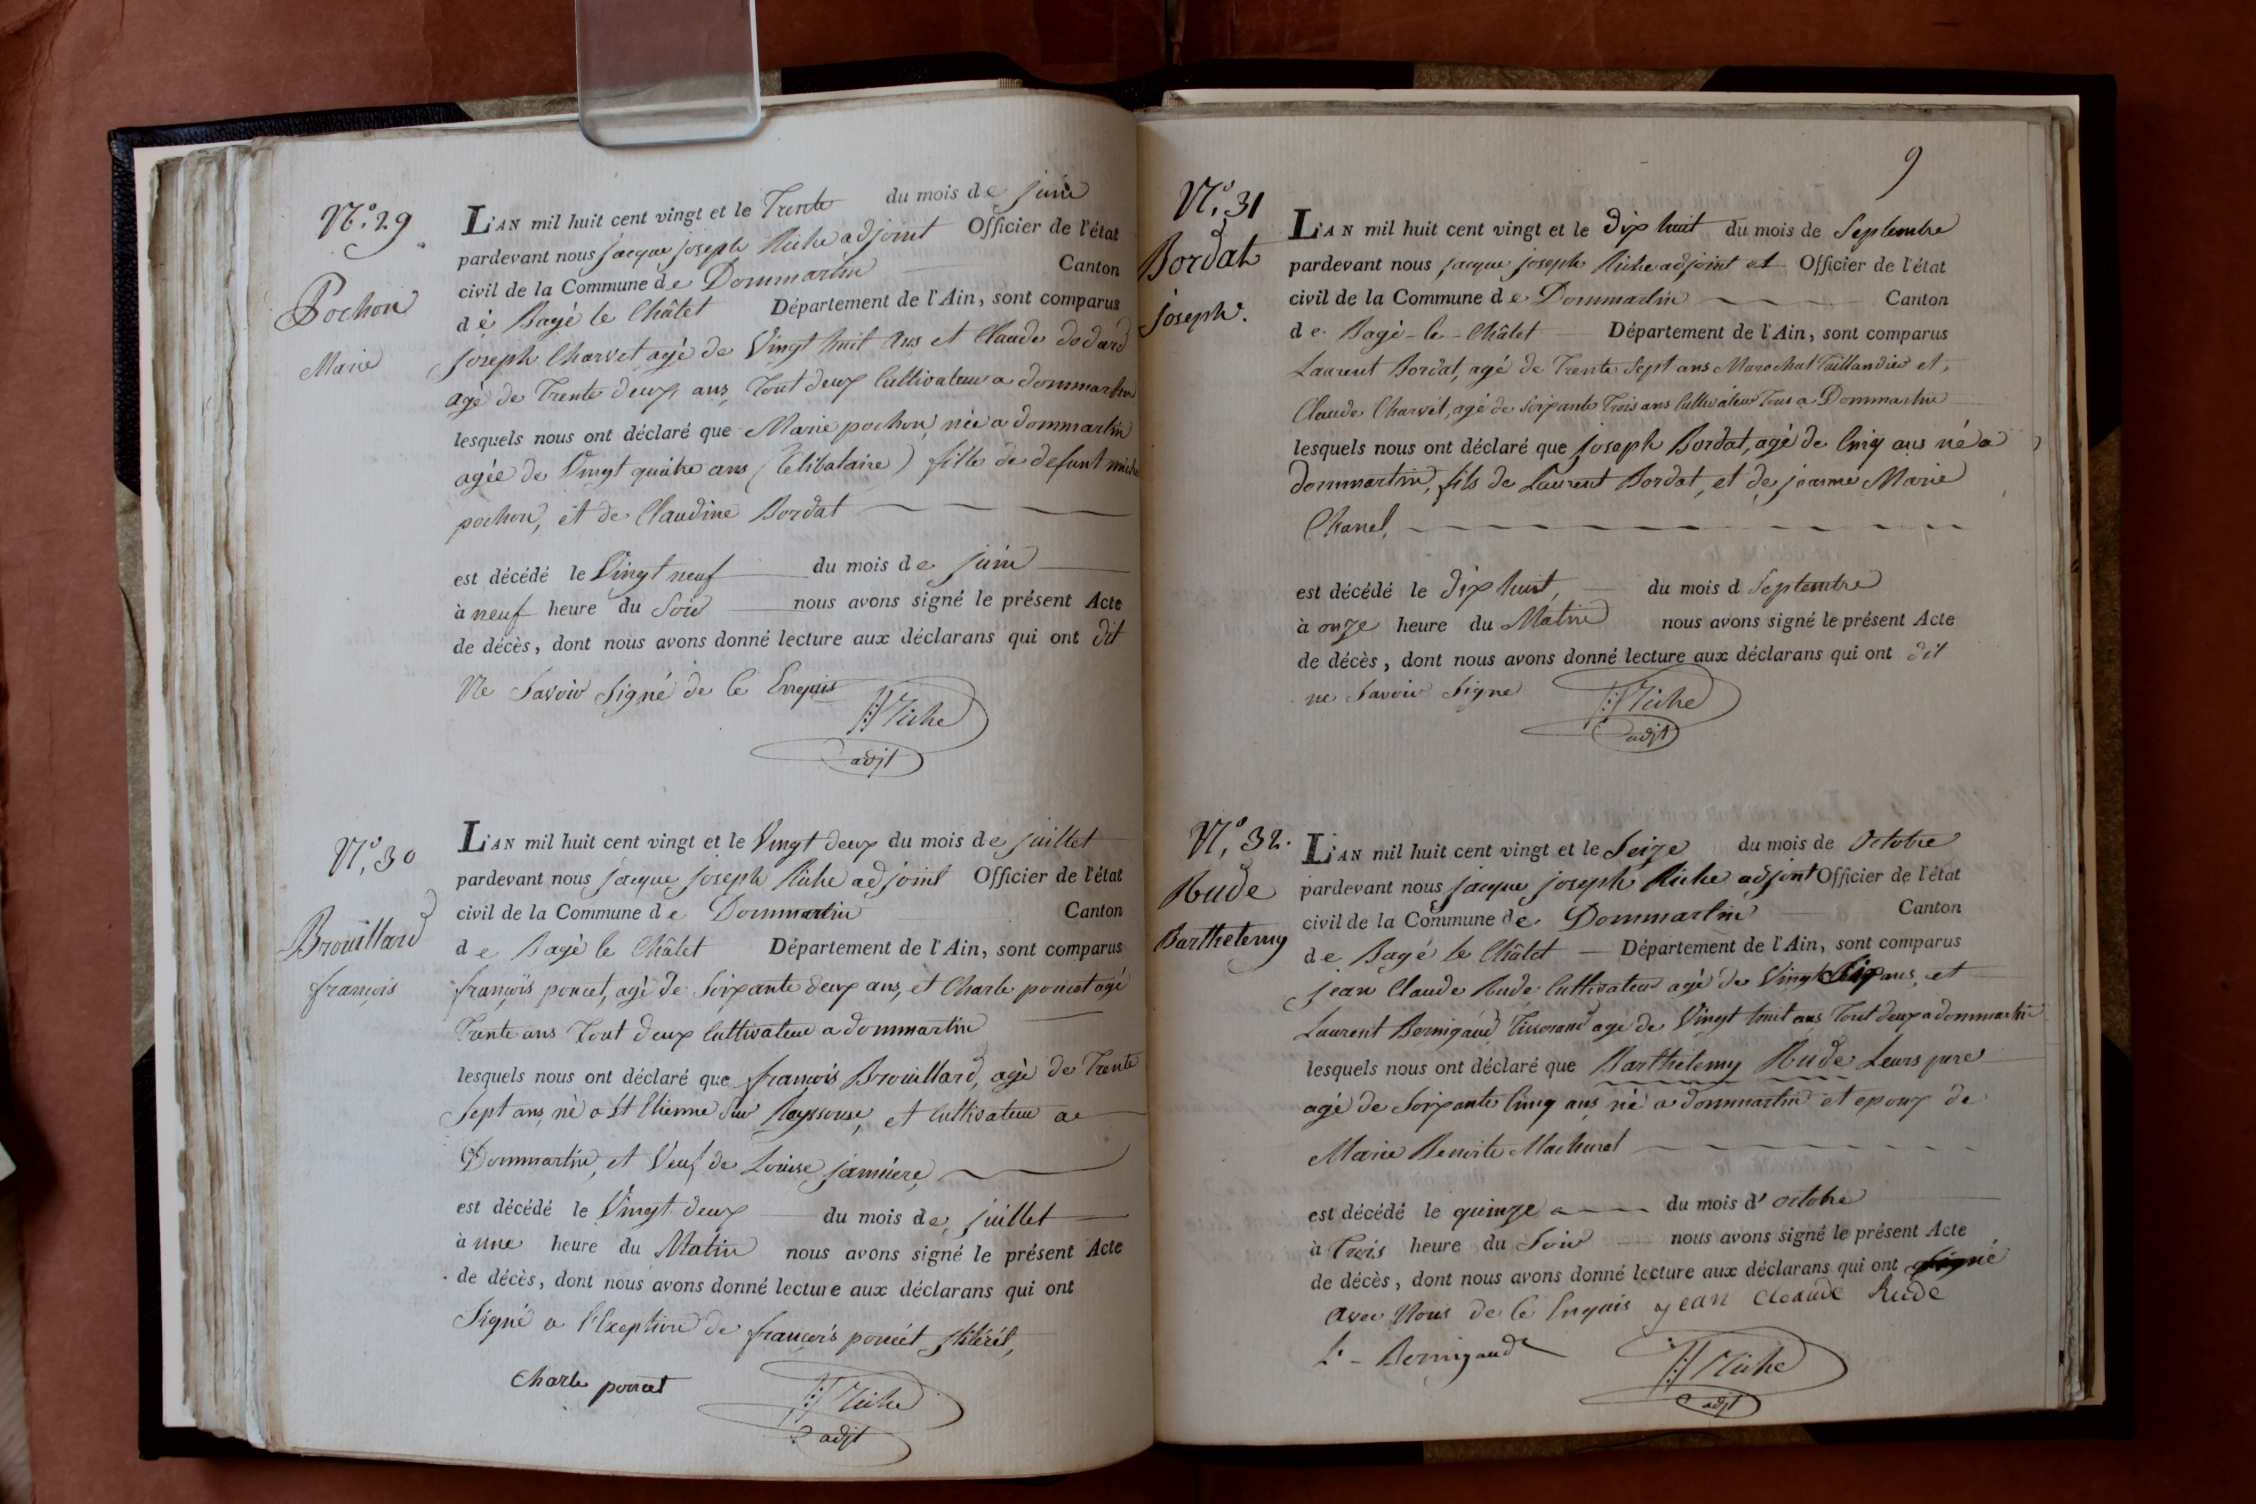 N.° 29
Pochon
Marie
L'AN mil huit cent vingt et le Trente du mois de juin
pardevant nous jacque joseph Riche adjoint Officier de l'état
civil de la Commune de Dommartin Canton
dé Bagé le Châtel Département de l'Ain, sont comparus
joseph Charvet agé de Vingt huit Ans et Claude dodard
agé de Trente deux ans, Tout deux Cultivateur a dommartin
lesquels nous ont déclaré que Marie pochon, née a dommartin
agée de Vingt quatre ans (Célibataire) fille de defunt
pochon, et de Claudine Bordat
est décédé le Vingt neuf du mois de juin
à neuf heure du Soir nous avons signé le présent Acte
de décès, dont nous avons donné lecture aux déclarans qui ont dit
Ne Savoir Signé de Ce Enrequis
Riche
adjt
N.° 30
Brouillard
françois
L'AN mil huit cent vingt et le Vingt deux du mois de juillet
pardevant nous jacque joseph Riche adjoint Officier de l'état
civil de la Commune de Dommartin Canton
de Bagé le Châtel Département de l'Ain, sont comparus
françois poncet, agé de Soixante deux ans, et Charle poncet agé
Trente ans Tout deux Cultivateur a dommartin
lesquels nous ont déclaré que françois Brouillard, agé de Trente
Sept ans, né a St Etienne Sur Reyssouse, et Cultivateur a
Dommartin, et Veuf de Louise janniere,
est décédé le Vingt deux du mois de juillet
à une heure du Matin nous avons signé le présent Acte
de décès, dont nous avons donné lecture aux déclarans qui ont
Signé a l'Exeption de françois poncét illitéré,
Charle poncet
Riche
adjt
9
N.° 31
Bordat
joseph.
L'AN mil huit cent vingt et le dix huit du mois de Septembre
pardevant nous jacque joseph Riche adjoint et Officier de l'état
civil de la Commune de Dommartin Canton
de Bagé-le-Châtel Département de l'Ain, sont comparus
Laurent Bordat, agé de Trente Sept ans Marechal Taillandier et,
Claude Charvét, agé de Soixante Trois ans Cultivateur Tous a Dommartin
lesquels nous ont déclaré que joseph Bordat, agé de Cinq ans né a
dommartin, fils de Laurent Bordat, et de jeanne Marie
Chanel,
est décédé le dix huit, du mois d Septembre
à onze heure du Matin nous avons signé le présent Acte
de décès, dont nous avons donné lecture aux déclarans qui ont dit
ne Savoir Signe
Riche
adjt
N.° 32.
Rude
Barthelemy
L'AN mil huit cent vingt et le Seize du mois de Octobre
pardevant nous jacque joseph Riche adjoint Officier de l'état
civil de la Commune de Dommartin Canton
de Bagé le Châtel Département de l'Ain, sont comparus
jean Claude Rude Cultivateur agé de Vingt Six ans, et
Laurent Bernigaud Tisserand agé de Vingt huit ans Tout deux a dommartin
lesquels nous ont déclaré que Barthelemy Rude Leurs pere
agé de Soixante Cinq ans né a dommartin et epoux de
Marie Benoite Machurat
est décédé le quinze du mois d' octobre
à Trois heure du Soir nous avons signé le présent Acte
de décès, dont nous avons donné lecture aux déclarans qui ont Signé
Avec Nous de Ce Enquis jean Claude Rude
L. Bernigaud
Riche
adjt